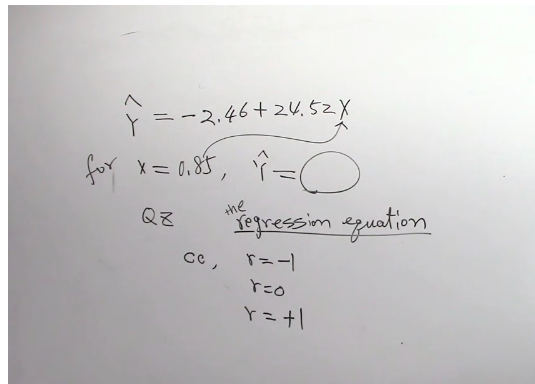 Ŷ = -2.46 + 24.52X
for x = 0.85, Ŷ =
QZ the regression equation
cc, r = -1
r = 0
r = +1